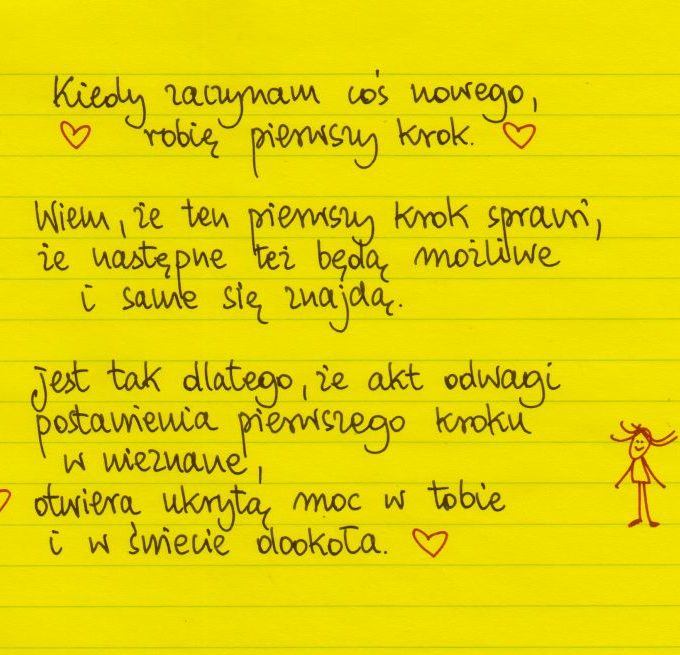 Kiedy zaczynam coś nowego,
robię pierwszy krok.
Wiem, że ten pierwszy krok sprawi,
że następne też będą możliwe
i same się znajdą.
Jest tak dlatego, że akt odwagi
postawienia pierwszego kroku
w nieznane,
otwiera ukrytą moc w tobie
i w świecie dookoła.